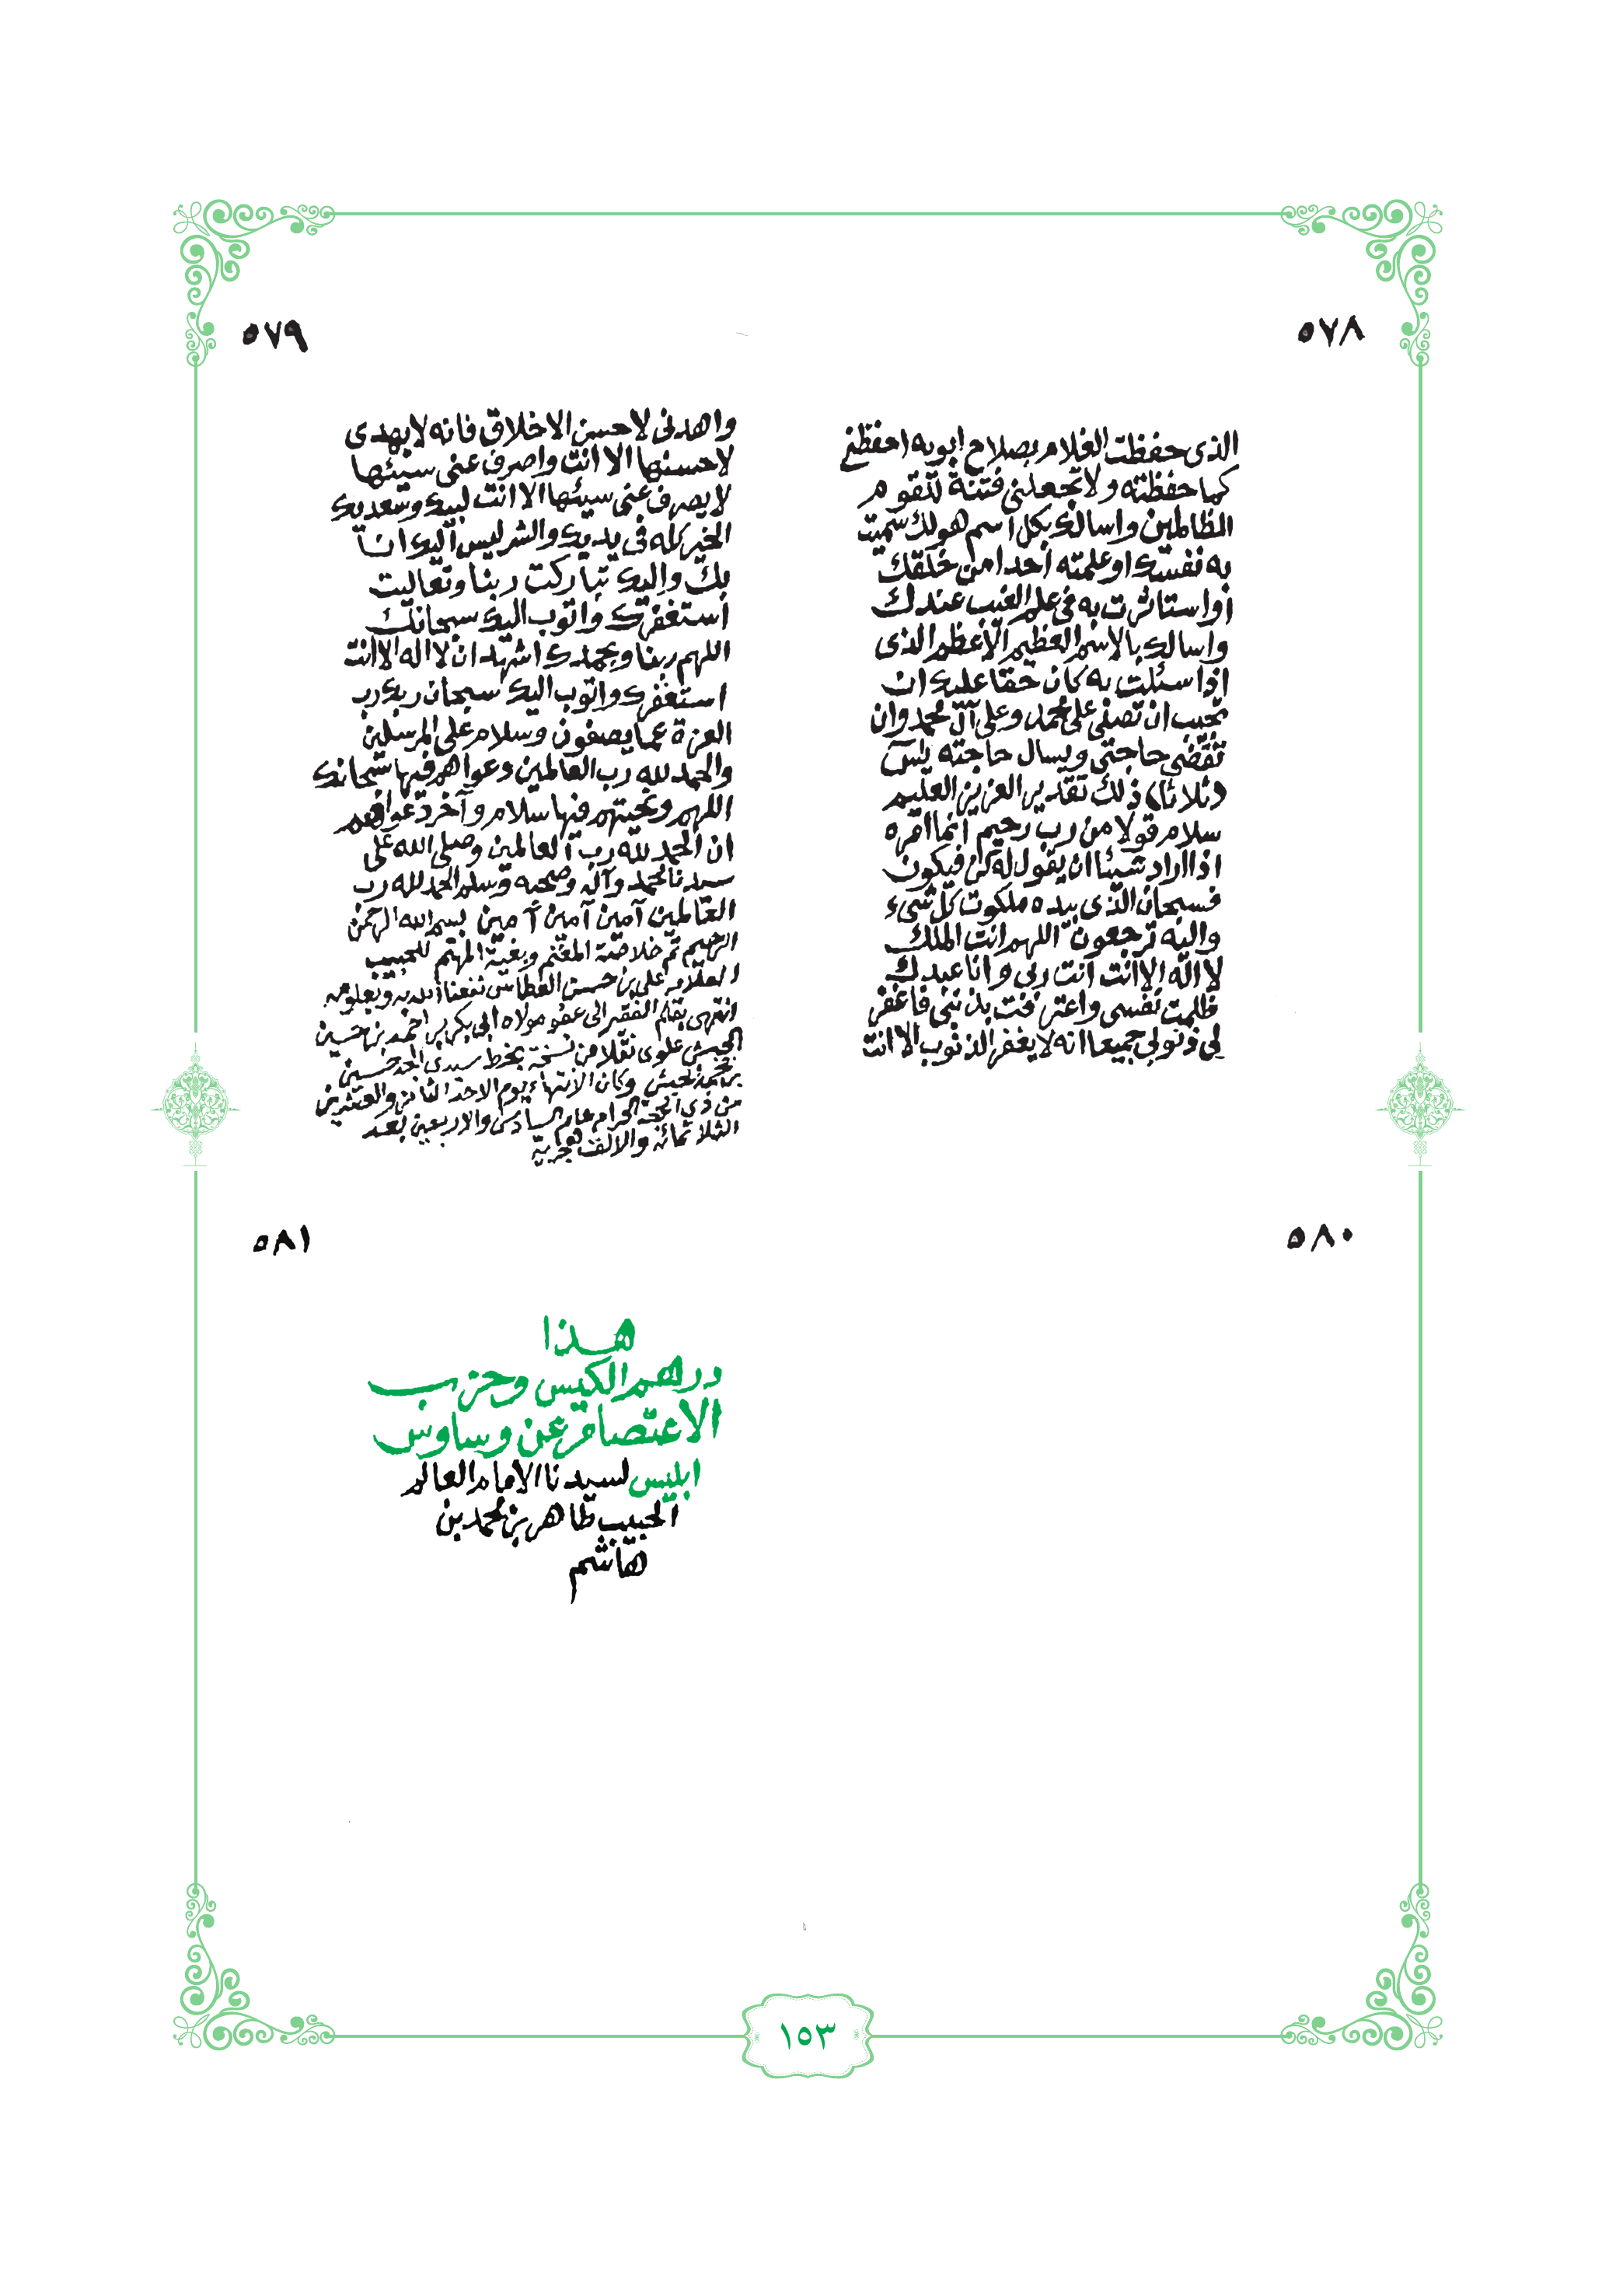 ٥٧٨
الذى حفظت الغلام بصلاح ابويه احفظنى
كما حفظته ولا تجعلنى فتنة للقوم
الظالمين واسالك بكل اسم هو لك سميت
به نفسك او علمته احدا من خلقك
أو استاثرت به فى علم الغيب عندك
واسالك بالاسم العظيم الأعظم الذى
اذا سئلت به كان حقا عليك ان
تجيب ان تصلى على محمد وعلى آل محمد وان
تقضي حاجتى ويسال حاجته يس
(ثلاثا) ذلك تقدير العزيز العليم
سلام قولا من رب رحيم انما امره
اذا اراد شيئا ان يقول له كن فيكون
فسبحان الذى بيده ملكوت كل شىء
واليه ترجعون اللهم انت الملك
لا اله الا انت انت ربى وانا عبدك
ظلمت نفسى واعترفت بذنبى فاغفر
لى ذنوبى جميعا انه لا يغفر الذنوب الا انت
٥٧٩
واهدنى لاحسن الاخلاق فانه لا يهدى
لاحسنها الا انت واصرف عنى سيئها
لا يصرف عنى سيئها الا انت لبيك وسعديك
الخير كله فى يديك والشر ليس اليك انا
بك واليك تباركت ربنا وتعاليت
استغفرك واتوب اليك سبحانك
اللهم ربنا وبحمدك اشهد ان لا اله الا انت
استغفرك واتوب اليك سبحان ربك رب
العزة عما يصفون وسلام على المرسلين
والحمد لله رب العالمين دعواهم فيها سبحانك
اللهم وتحيتهم فيها سلام وآخر دعواهم
ان الحمد لله رب العالمين وصلى الله على
سيدنا محمد وآله وصحبه وسلم الحمد لله رب
العالمين آمين آمين آمين بسم الله الرحمن
الرحيم تم خلاصة المغنم وبغية المهتم للحبيب
العلامه على بن حسن العطاس نفعنا الله به وبعلومه
انتهى بقلم الفقير الى عفو مولاه ابى بكر بن احمد بن حسين
الحبشى علوى نقلا من نسخة بخط سيدى الجد حسين
بن محمد الحبشى وكان الانتهاء يوم الاحد الثانى والعشرين
من ذى الحجة الحرام عام السادس والاربعين بعد
الثلاثمائه والالف هجرية
٥٨٠
٥٨١
هذا
درهم الكيس وحزب
الاعتصام عن وساوس
ابليس لسيدنا الامام العالم
الحبيب طاهر بن محمد بن
هاشم
١٥٣